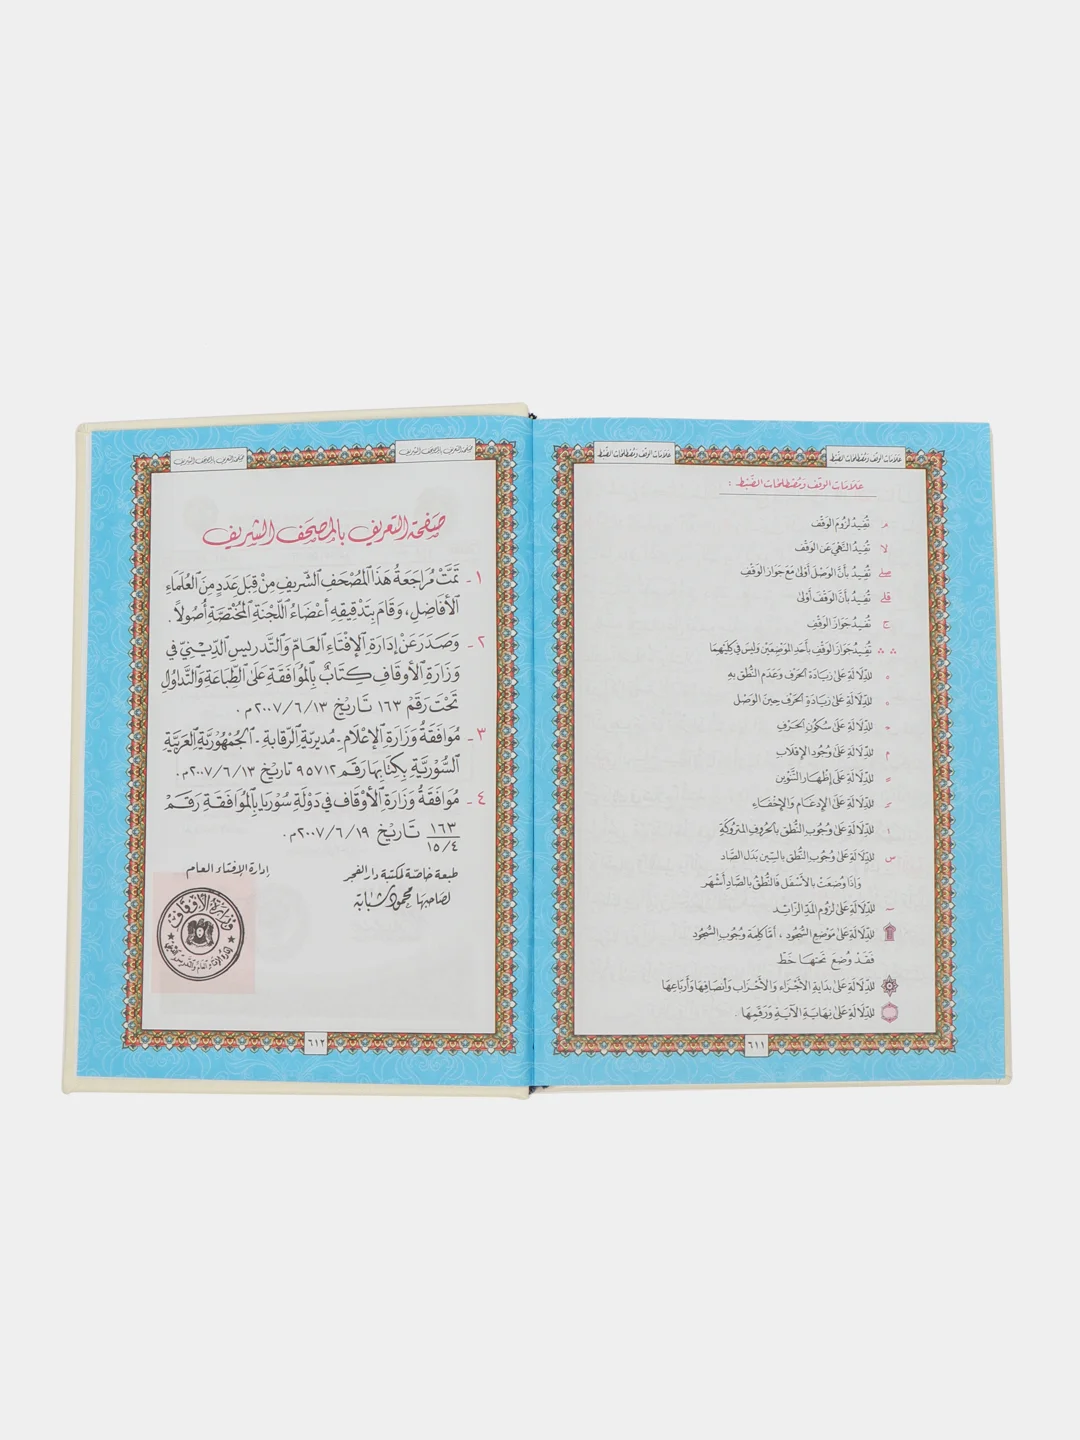 عَلَامَات الوَقْف وَمُصْطَلَحَات الضَّبْط
عَلَامَات الوَقْف وَمُصْطَلَحَات الضَّبْط
عَلَامَات الوَقْف وَمُصْطَلَحَات الضَّبْط :
م تُفِيدُ لُزُومَ الوَقْف
لا تُفِيدُ النَّهْيَ عَنِ الوَقْف
صلے تُفِيدُ بأَنَّ الوَصْلَ أَوْلَىٰ مَعَ جَوَازِ الوَقْفِ
قلے تُفِيدُ بأَنَّ الوَقْفَ أَوْلَىٰ
ج تُفِيدُ جَوَازَ الوَقْفِ
∴ ∴ تُفِيدُ جَوَازَ الوَقْفِ بأَحَدِ المَوْضِعَيْنِ وَلَيْسَ فِي كِلَيْهِمَا
للدِّلَالَةِ عَلَىٰ زيَادَةِ الحَرْف وَعَدَمِ النُّطْقِ بهِ
للدِّلَالَةِ عَلَىٰ زيَادَةِ الحَرْفِ حِينَ الوَصْل
للدِّلَالَةِ عَلَىٰ سُكُونِ الحَرْفِ
م للدِّلَالَةِ عَلَىٰ وُجُودِ الإِقْلَاب
للدِّلَالَةِ عَلَىٰ إِظْهَارِ التَّنْوِين
للدِّلَالَةِ عَلَىٰ الإِدغَامِ وَالإِخْفَاءِ
للدِّلَالَةِ عَلَىٰ وُجُوبِ النُّطْقِ بالحُرُوفِ المَتْرُوكَةِ
س للدِّلَالَةِ عَلَىٰ وُجُوبِ النُّطْقِ بالسِّينِ بَدَلَ الصَّاد
وَإذَا وُضِعَتْ بالأَسْفَلِ فَالنُّطْقُ بالصَّادِ أَشْهَر
للدِّلَالَةِ عَلَىٰ لزُومِ المَدِّ الزَائِد
للدِّلَالَةِ عَلَىٰ مَوْضِعِ السُّجُودِ ، أَمَّا كَلِمَة وُجُوبِ السُّجُود
فَقَدْ وُضِعَ تَحتَهَا خَطّ
للدِّلَالَةِ عَلَىٰ بدَايَةِ الأَجْزَاءِ وَالأَحْزَاب وَأَنصَافِهَا وَأَرْبَاعِهَا
للدِّلَالَةِ عَلَىٰ نِهَايَةِ الآيَةِ وَرَقَمِهَا .
٦١١
صفحة التعريف بالمصحف الشريف
صفحة التعريف بالمصحف الشريف
صَفحة التَعريف بالمُصحَف الشَريف
١ - تَمَّتْ مُرَاجَعَةُ هَذَا المُصْحَفِ الشَّرِيفِ مِنْ قِبَلِ عَدَدٍ مِنَ العُلَمَاءِ
الأَفَاضِلِ، وَقَامَ بِتَدْقِيقِهِ أَعْضَاءُ اللَّجْنَةِ المُخْتَصَّةِ أُصُولاً .
٢ - وَصَدَرَ عَنْ إدَارَةِ الإِفْتَاءِ العَامِّ وَالتَّدريسِ الدِّينِيِّ في
وَزَارَةِ الأَوقَافِ كِتَابٌ بِالمُوَافَقَةِ عَلَىٰ الطِّبَاعَةِ وَالتَّدَاوُلِ
تَحْتَ رَقَمْ ١٦٣ تَاريْخ ٢٠٠٧/٦/١٣م .
٣ - مُوَافَقَةُ وَزَارَةِ الإعْلَامِ - مُديريّةِ الرّقَابة - الجُمْهُوريَّةِ العَرَبيَّةِ
السُّوريَّةِ بِكِتَابِهَا رَقم ٩٥٧١٢ تاريْخ ٢٠٠٧/٦/١٣م .
٤ - مُوَافَقَةُ وَزَارَةِ الأوْقَاف في دَوْلَةِ سُوريَا بِالمُوَافَقَةِ رَقَمْ
١٦٣
١٥/٤ تَاريْخ ٢٠٠٧/٦/١٩م .
طبعة خاصّة لمكتبة دار الفجر
إدارة الإفتاء العام
لصاحبها محمود شبابة
وزارة الأوقاف
٦١٢